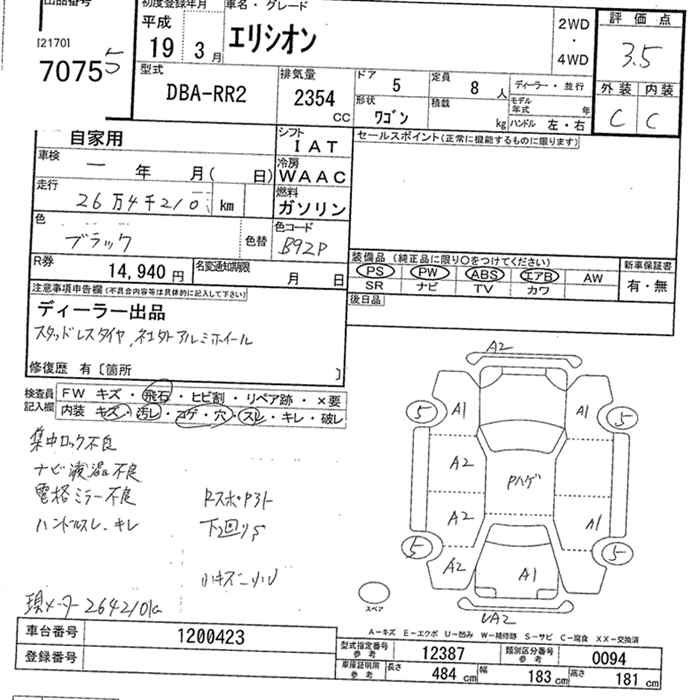 出品番号
[2170]
7075 5
初度登録年月
平成
19 3月
車名・グレード
エリシオン
2WD
・
4WD
評価点
3.5
外装 内装
C C
型式
DBA-RR2
排気量
2354
CC
ドア 5
定員 8 人
ディーラー・並行
形状
ワゴン
積載
kg
モデル年式 年
ハンドル 左・右
自家用
シフト
IAT
セールスポイント(正常に機能するものに限ります)
車検
一 年 月( 日)
冷房
WAAC
走行
26万4千210 km
燃料
ガソリン
色
ブラック
色替
色コード
B92P
R券
14,940 円
名変通知期限
月 日
装備品 (純正品に限り○をつけてください)
PS PW ABS エアB AW
SR ナビ TV カワ
新車保証書
有・無
後日品
注意事項申告欄(不具合内容等は具体的に記入して下さい)
ディーラー出品
スタッドレスタイヤ、社外アルミホイール
修復歴 有〔箇所 〕
検査員記入欄
FW キズ・飛石・ヒビ割・リペア跡・×要
内装 キズ・汚レ・コゲ・穴・スレ・キレ・破レ
集中ロック不良
ナビ液晶不良
電格ミラー不良
ハンドルスレ、キレ
下回りS
小キズ
現メーター264210k
A2
5 A1 5
A2
Pハゲ
A2 A1
5 5
A2 A1
スペア
UA2
A-キズ E-エクボ U-凹み W-補修跡 S-サビ C-腐食 XX-交換済
車台番号
1200423
登録番号
型式指定番号
参考
12387
類別区分番号
参考
0094
車庫証明用
参考
長さ 484 cm
幅 183 cm
高さ 181 cm